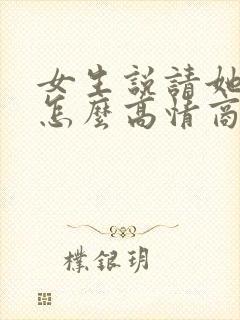 女生說請她
怎麼高情商
樸銀玥